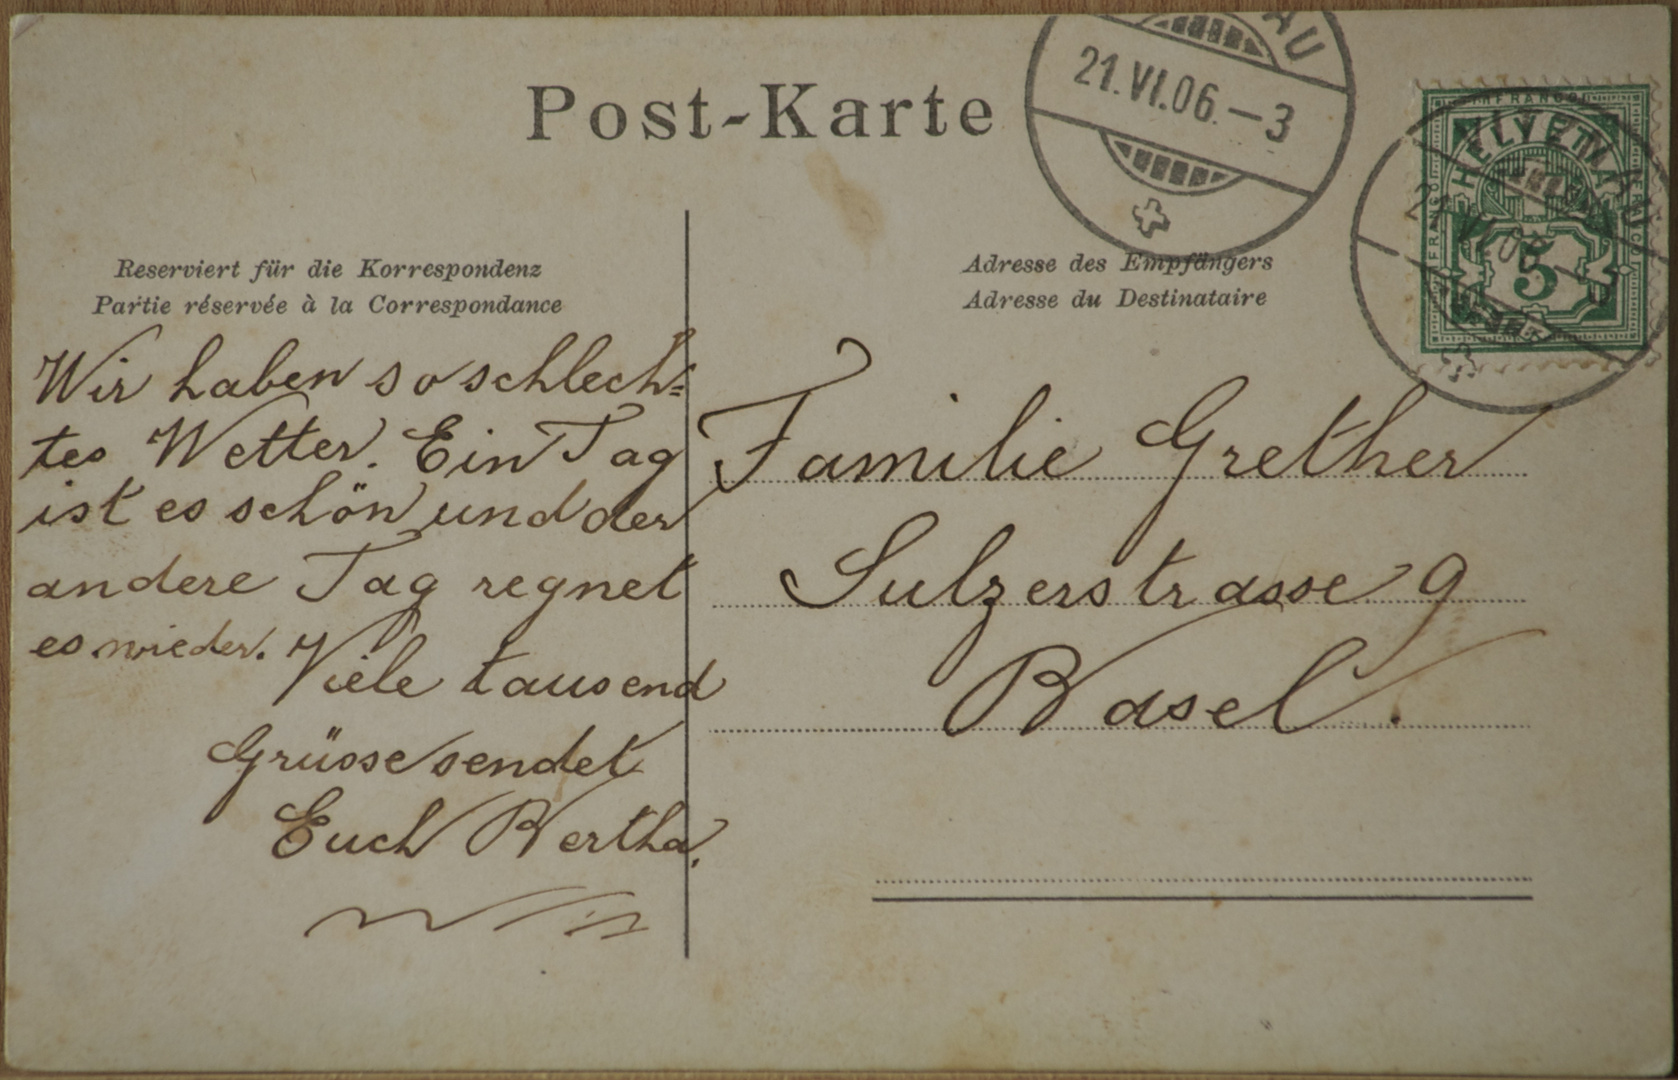 Post-Karte
AU
21.VI.06.-3
FRANCO
HELVETIA
FRANCO
FRANCO
5
Reserviert für die Korrespondenz
Partie réservée à la Correspondance
Wir haben so schlech=
tes Wetter. Ein Tag
ist es schön und der
andere Tag regnet
es wieder. Viele tausend
Grüsse sendet
Euch Bertha.
Adresse des Empfängers
Adresse du Destinataire
Familie Grether
Sulzerstrasse 9
Basel.